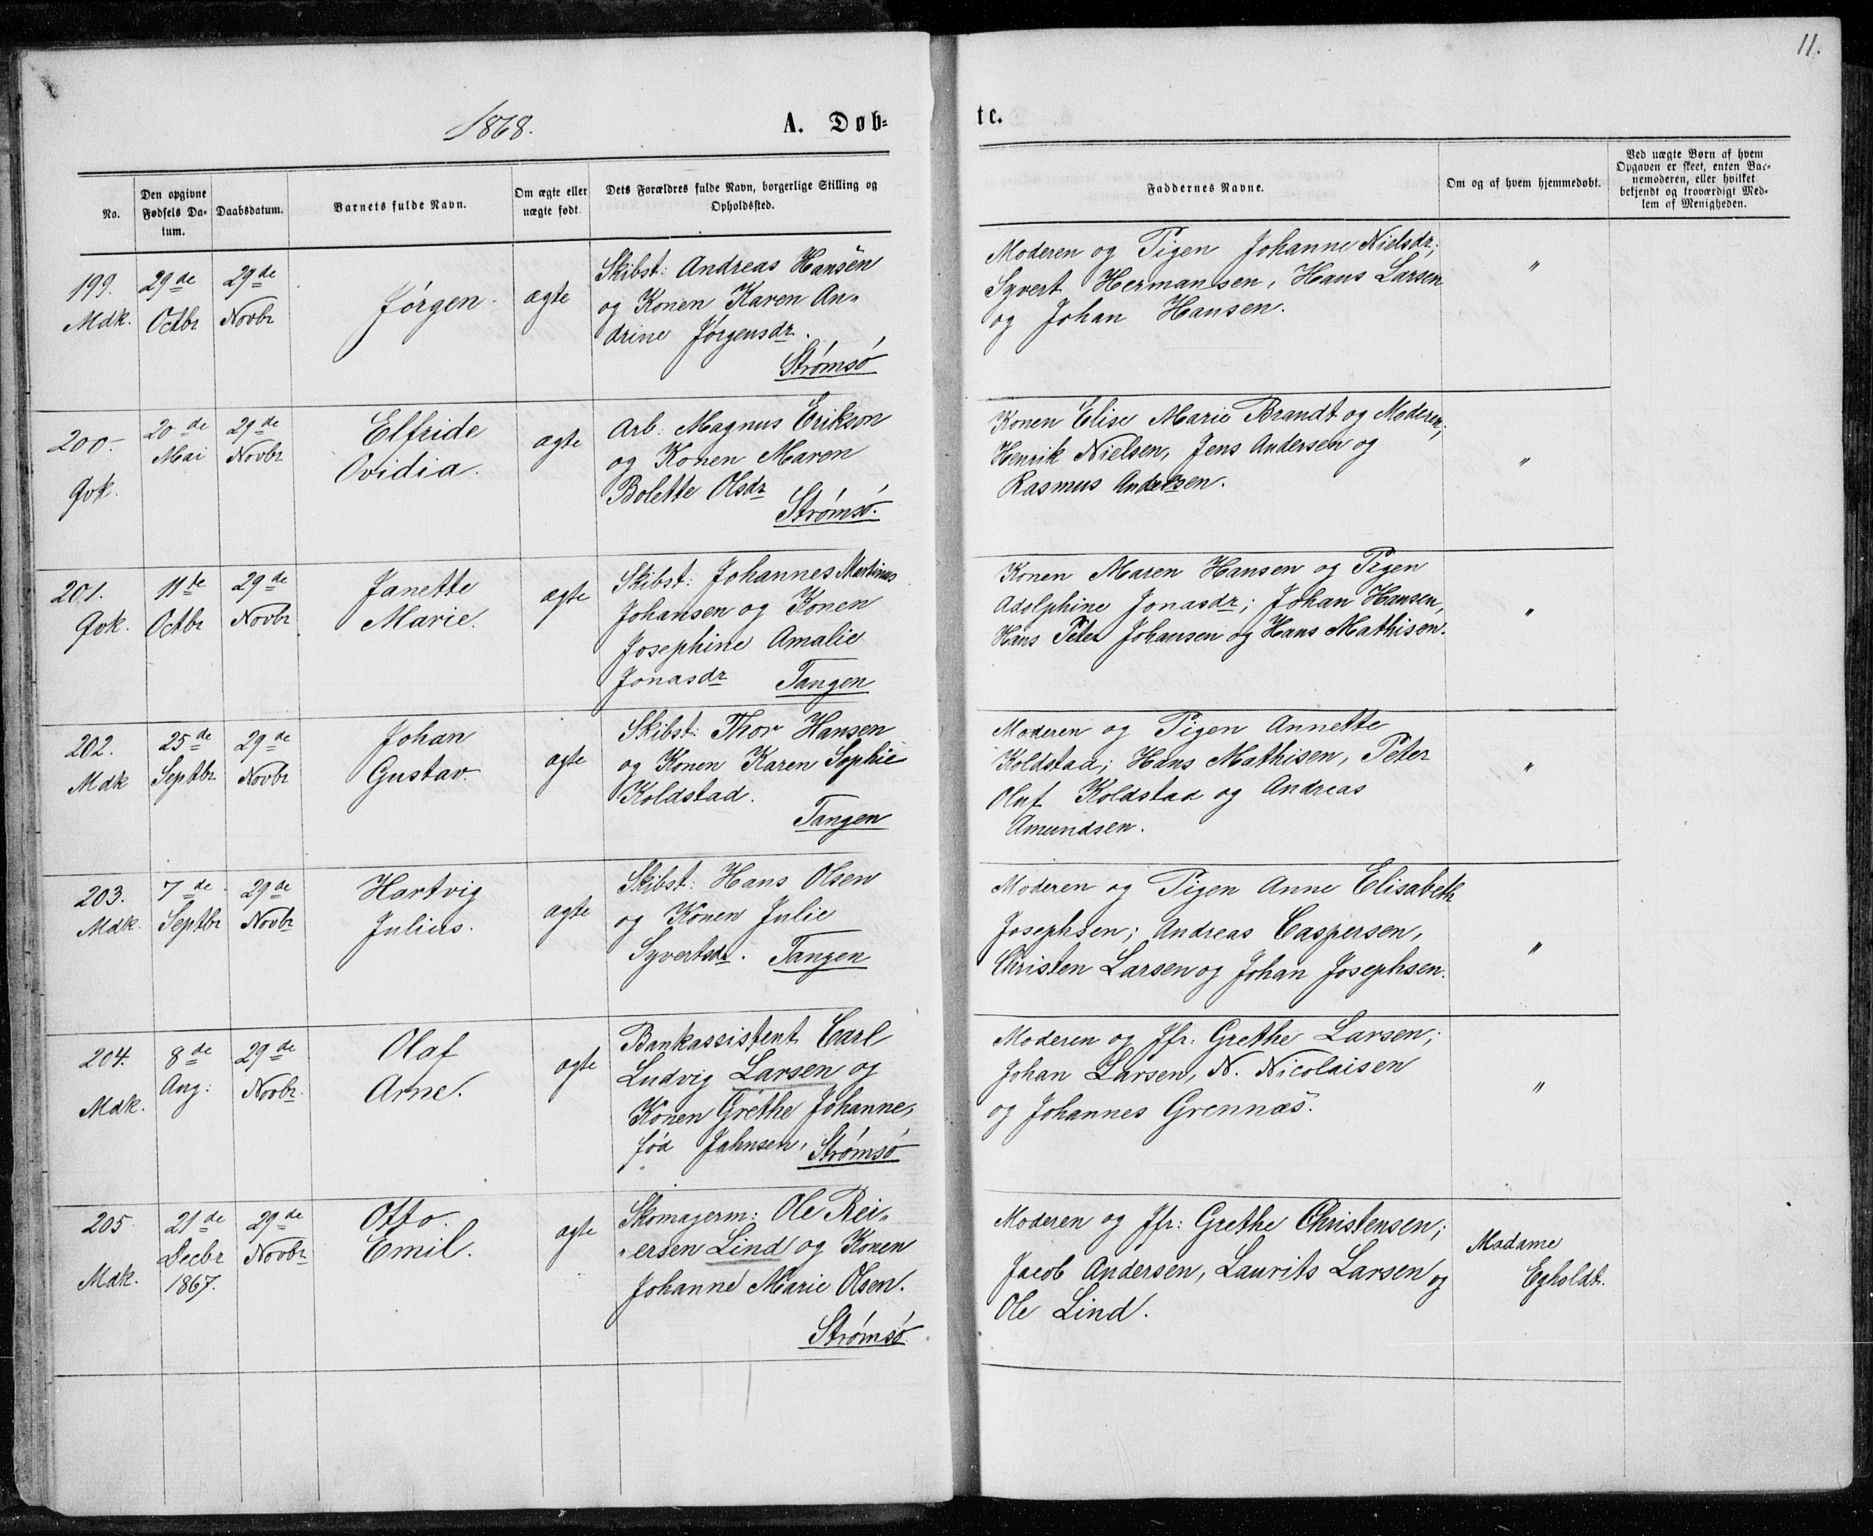 11.
1868.
A. Døb-
te.
No.
Den opgivne Fødsels Da-
tum.
Daabsdatum.
Barnets fulde Navn.
Om ægte eller
uægte født.
Dets Forældres fulde Navn, borgerlige Stilling og
Opholdssted.
Faddernes Navne.
Om og af hvem hjemmedøbt.
Ved uægte Børn af hvem
Opgaven er skeet, enten Bar-
nemoderen, eller hvilket
bekjendt og troværdigt Med-
lem af Menigheden.
199.
Mdk.
29de
Octbr
29de
Novbr
Jørgen
ægte
Skibst: Andreas Hansen
og Konen Karen An-
drine Jørgensdr.
Strømsø
Moderen og Pigen Johanne Nielsdr;
Syvert Hermansen, Hans Larsen
og Johan Hansen.
"
200.
Qvk.
20de
Mai
29de
Novbr
Elfride
Ovidia.
ægte
Arb: Magnus Erikson
og Konen Maren
Bolette Olsdr
Strømsø.
Konen Elise Marie Brandt og Moderen;
Henrik Nielsen, Jens Andersen og
Rasmus Andersen.
"
201.
Qvk.
11te
Octbr
29de
Novbr
Janette
Marie.
ægte
Skibst: Johannes Martinus
Johansen og Konen
Josephine Amalie
Jonasdr
Tangen
Konen Maren Hansen og Pigen
Adolphine Jonasdr; Johan Hansen,
Hans Peter Johansen og Hans Mathisen.
"
202.
Mdk
25de
Septbr
29de
Novbr
Johan
Gustav.
ægte
Skibst: Thor Hansen
og Konen Karen Sophie
Koldstad.
Tangen
Moderen og Pigen Annette
Koldstad; Hans Mathisen, Peter
Oluf Koldstad og Andreas
Amundsen.
"
203.
Mdk.
7de
Septbr
29de
Novbr
Hartvig
Julius.
ægte
Skibst: Hans Olsen
og Konen Julie
Syvertsdr. Tangen
Moderen og Pigen Anne Elisabeth
Josephsen; Andreas Caspersen,
Christen Larsen og Johan Josephsen.
"
204.
Mdk.
8de
Aug:
29de
Novbr.
Olaf
Arne.
ægte
Bankassistent Carl
Ludvig Larsen og
Konen Grethe Johanne,
fød Jahnsen, Strømsø
Moderen og Jfr: Grethe Larsen;
Johan Larsen, N. Nicolaisen
og Johannes Grennæs.
"
205
Mdk.
21de
Decbr
1867.
29de
Novbr
Otto
Emil.
ægte
Skomagerm: Ole Rei-
ersen Lind og Konen
Johanne Marie Olsen.
Strømsø
Moderen og Jfr: Grethe Christensen;
Jacob Andersen, Laurits Larsen og
Ole Lind.
Madame
Egholdt.